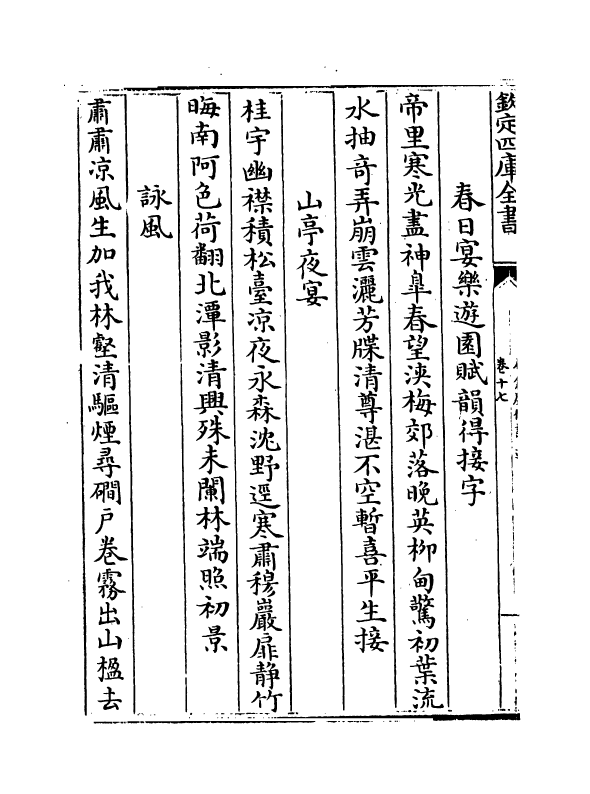 欽定四庫全書
卷十七
春日宴樂遊園賦韻得接字
帝里寒光盡神臯春望浹梅郊落晚英柳甸驚初葉流
水抽奇弄崩雲灑芳牒清尊湛不空暫喜平生接
山亭夜宴
桂宇幽襟積松臺凉夜永森沈野逕寒肅穆巖扉靜竹
晦南阿色荷翻北潭影清興殊未闌林端照初景
詠風
肅肅凉風生加我林壑清驅煙尋磵戶卷霧出山楹去